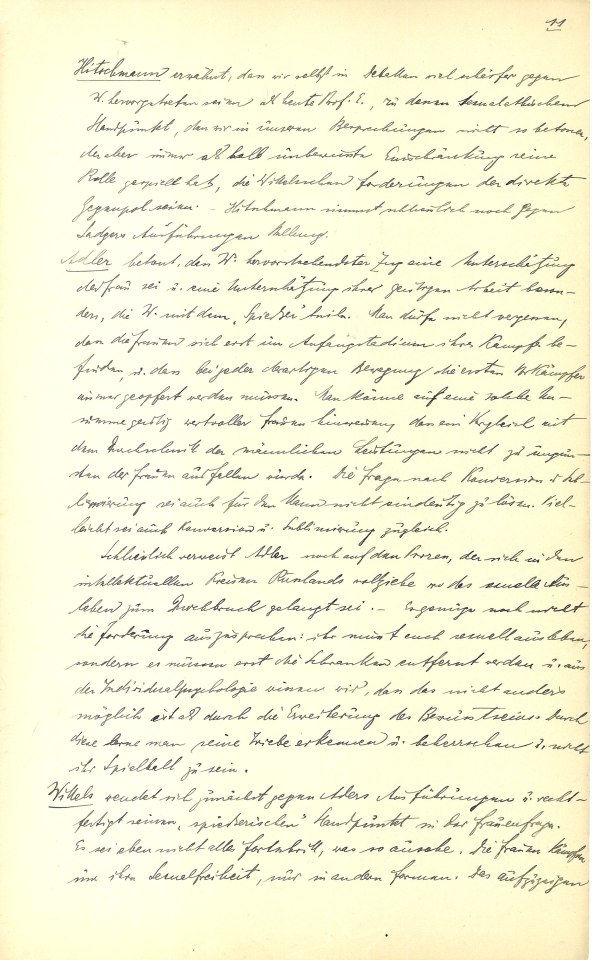 11
Hitschmann erwähnt, dass wir selbst in Debatten viel schärfer gegen
W. hervorgetreten seien als heute Prof. E., zu dessen sexualethischem
Standpunkt, den wir in unseren Besprechungen nicht so betonen,
der aber immer als halb unbewusste Einschränkung seine
Rolle gespielt hat, die Wittelsschen Forderungen der direkte
Gegenpol seien. – Hitschmann nimmt schliesslich noch gegen
Sadgers Ausführungen Stellung.
Adler betont, dass W's hervorstechendster Zug eine Unterschätzung
der Frau sei u. eine Unterschätzung ihrer geistigen Arbeit beson-
ders, die W. mit dem "Spiesser" teile. Man dürfe nicht vergessen,
dass die Frauen sich erst im Anfangsstadium ihres Kampfes be-
finden, u. dass bei jeder derartigen Bewegung die ersten Vorkämpfer
immer geopfert werden müssen. Man könne auf eine solche Un-
summe geistig wertvoller Frauen hinweisen, dass ein Vergleich mit
dem Durchschnitt der männlichen Leistungen nicht zu ungun-
sten der Frauen ausfallen würde. Die Frage nach Konversion u. Sub-
limierung sei auch für den Mann nicht eindeutig zu lösen. Viel-
leicht sei auch Konversion u. Sublimierung zugleich.
Schliesslich verweist Adler noch auf den Prozess, der sich in den
intellektuellen Kreisen Russlands vollziehe wo das sexuelle Aus-
leben zum Durchbruch gelangt sei. – Es genüge noch nicht
die Forderung auszusprechen: ihr müsst euch sexuell ausleben,
sondern es müssen erst die Schranken entfernt werden u. aus
der Individualpsychologie wissen wir, dass das nicht anders
möglich ist als durch die Erweiterung des Bewusstseins. Durch
diese lerne man seine Triebe erkennen u. beherrschen u. nicht
ihr Spielball zu sein.
Wittels wendet sich zunächst gegen Adlers Ausführungen u. recht-
fertigt seinen "spiesserischen" Standpunkt in der Frauenfrage.
Es sei eben nicht alles Fortschritt, was so aussehe. Die Frauen kämpfen
um ihre Sexualfreiheit, nur in andern Formen. Das aufzuzeigen